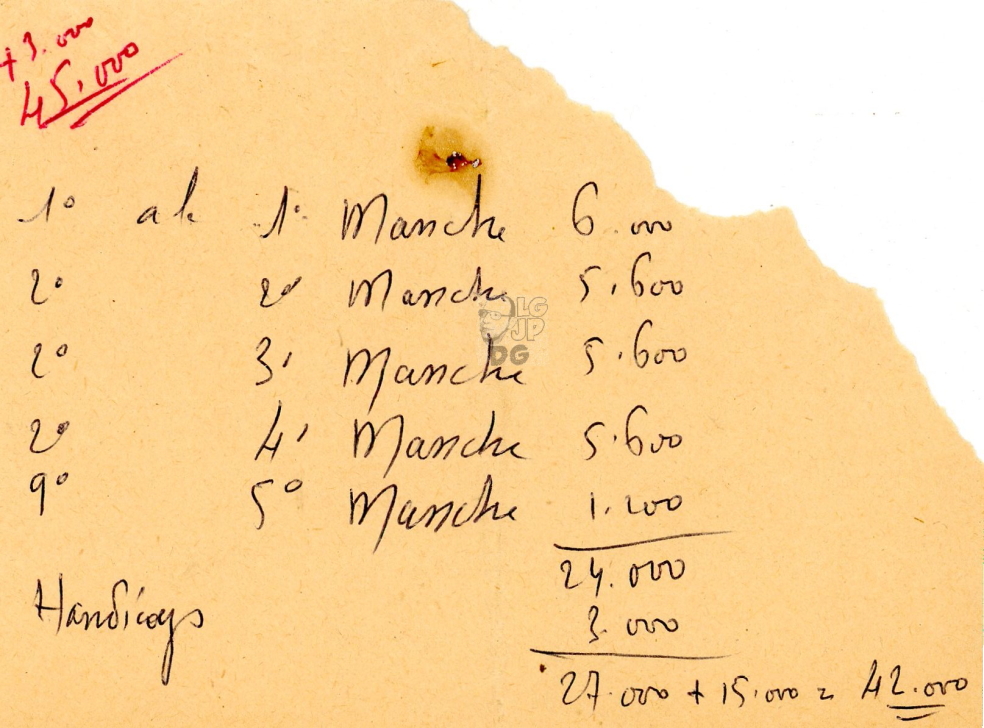 + 3.000
45.000
1° al 1° Manche 6.000
2° 2° Manche 5.600
2° 3' Manche 5.600
2° 4' Manche 5.600
9° 5° Manche 1.200
24.000
Handicaps 3.000
27.000 + 15.000 = 42.000
LG
JP
DG